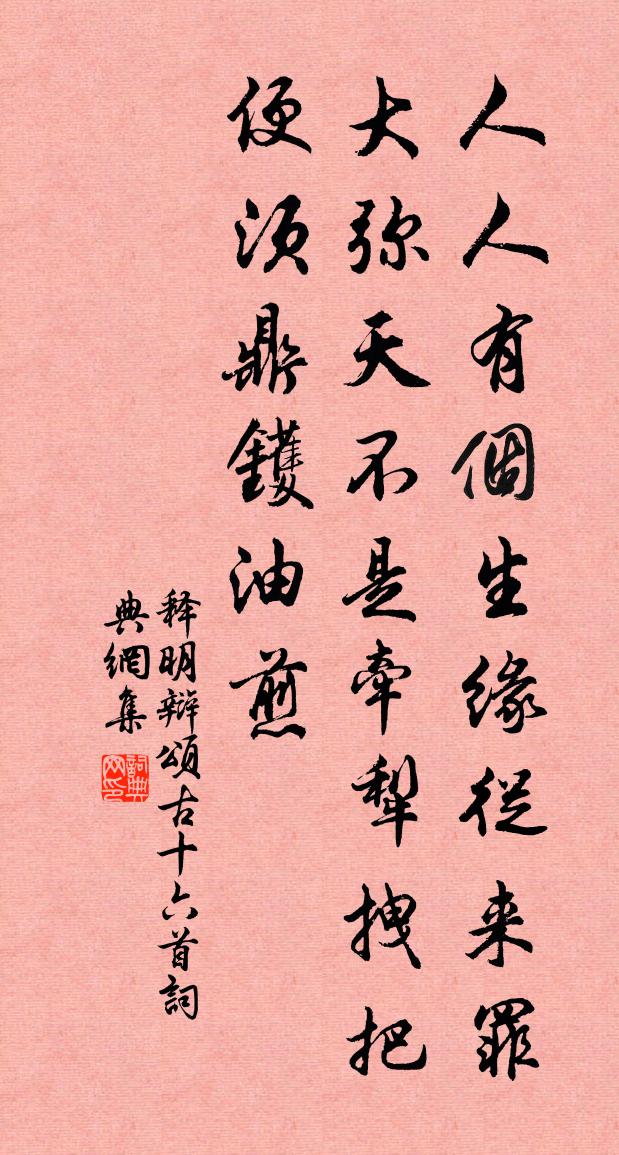 人人有個生緣從来罪
大弥天不是牽犁拽把
便須鼎鑊油煎
释明辯頌古十六首詞
典網集
詞典
网印